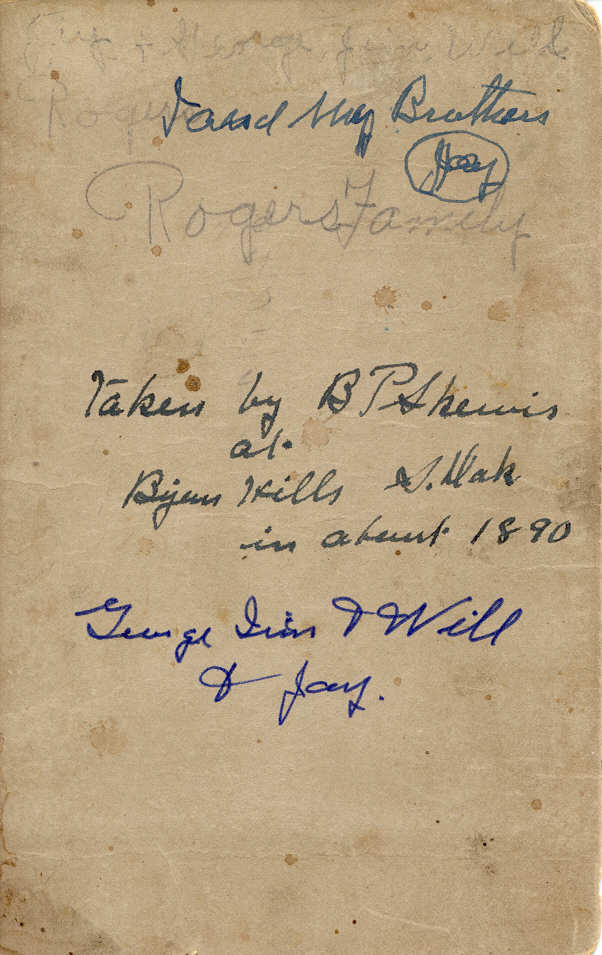 Jay & George, Jim, Will
Rogers
I and My Brothers
Jay
Rogers Family
Taken by B P Skewis
at
Bijou Hills S. Dak
in about 1890
George Jim & Will
& Jay.